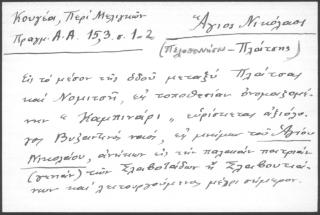 Κουγέα, Περὶ Μελιγκῶν
Πραγμ. Α.Α. 15,3. σ. 1-2
Ἅγιος Νικόλαος
(Πελοπόννησον - Πλάτσης)
Εἰς τὸ μέσον τῆς ὁδοῦ μεταξὺ Πλάτσας
καὶ Νομιτσῆ, ἐν τοποθεσίᾳ ὀνομαζομέ-
νῃ "Καμπινάρι", εὑρίσκεται ἀξιόλο-
γος Βυζαντινὸς ναός, ἐν μνήμῃ τοῦ Ἁγίου
Νικολάου, ἀνήκων εἰς τὴν παλαιὰν πατριὰν
(γενεὰν) τῶν Σκλαβοταδῶν ἢ Σκλαβουτια-
νῶν καὶ λειτουργούμενος μέχρι σήμερον.